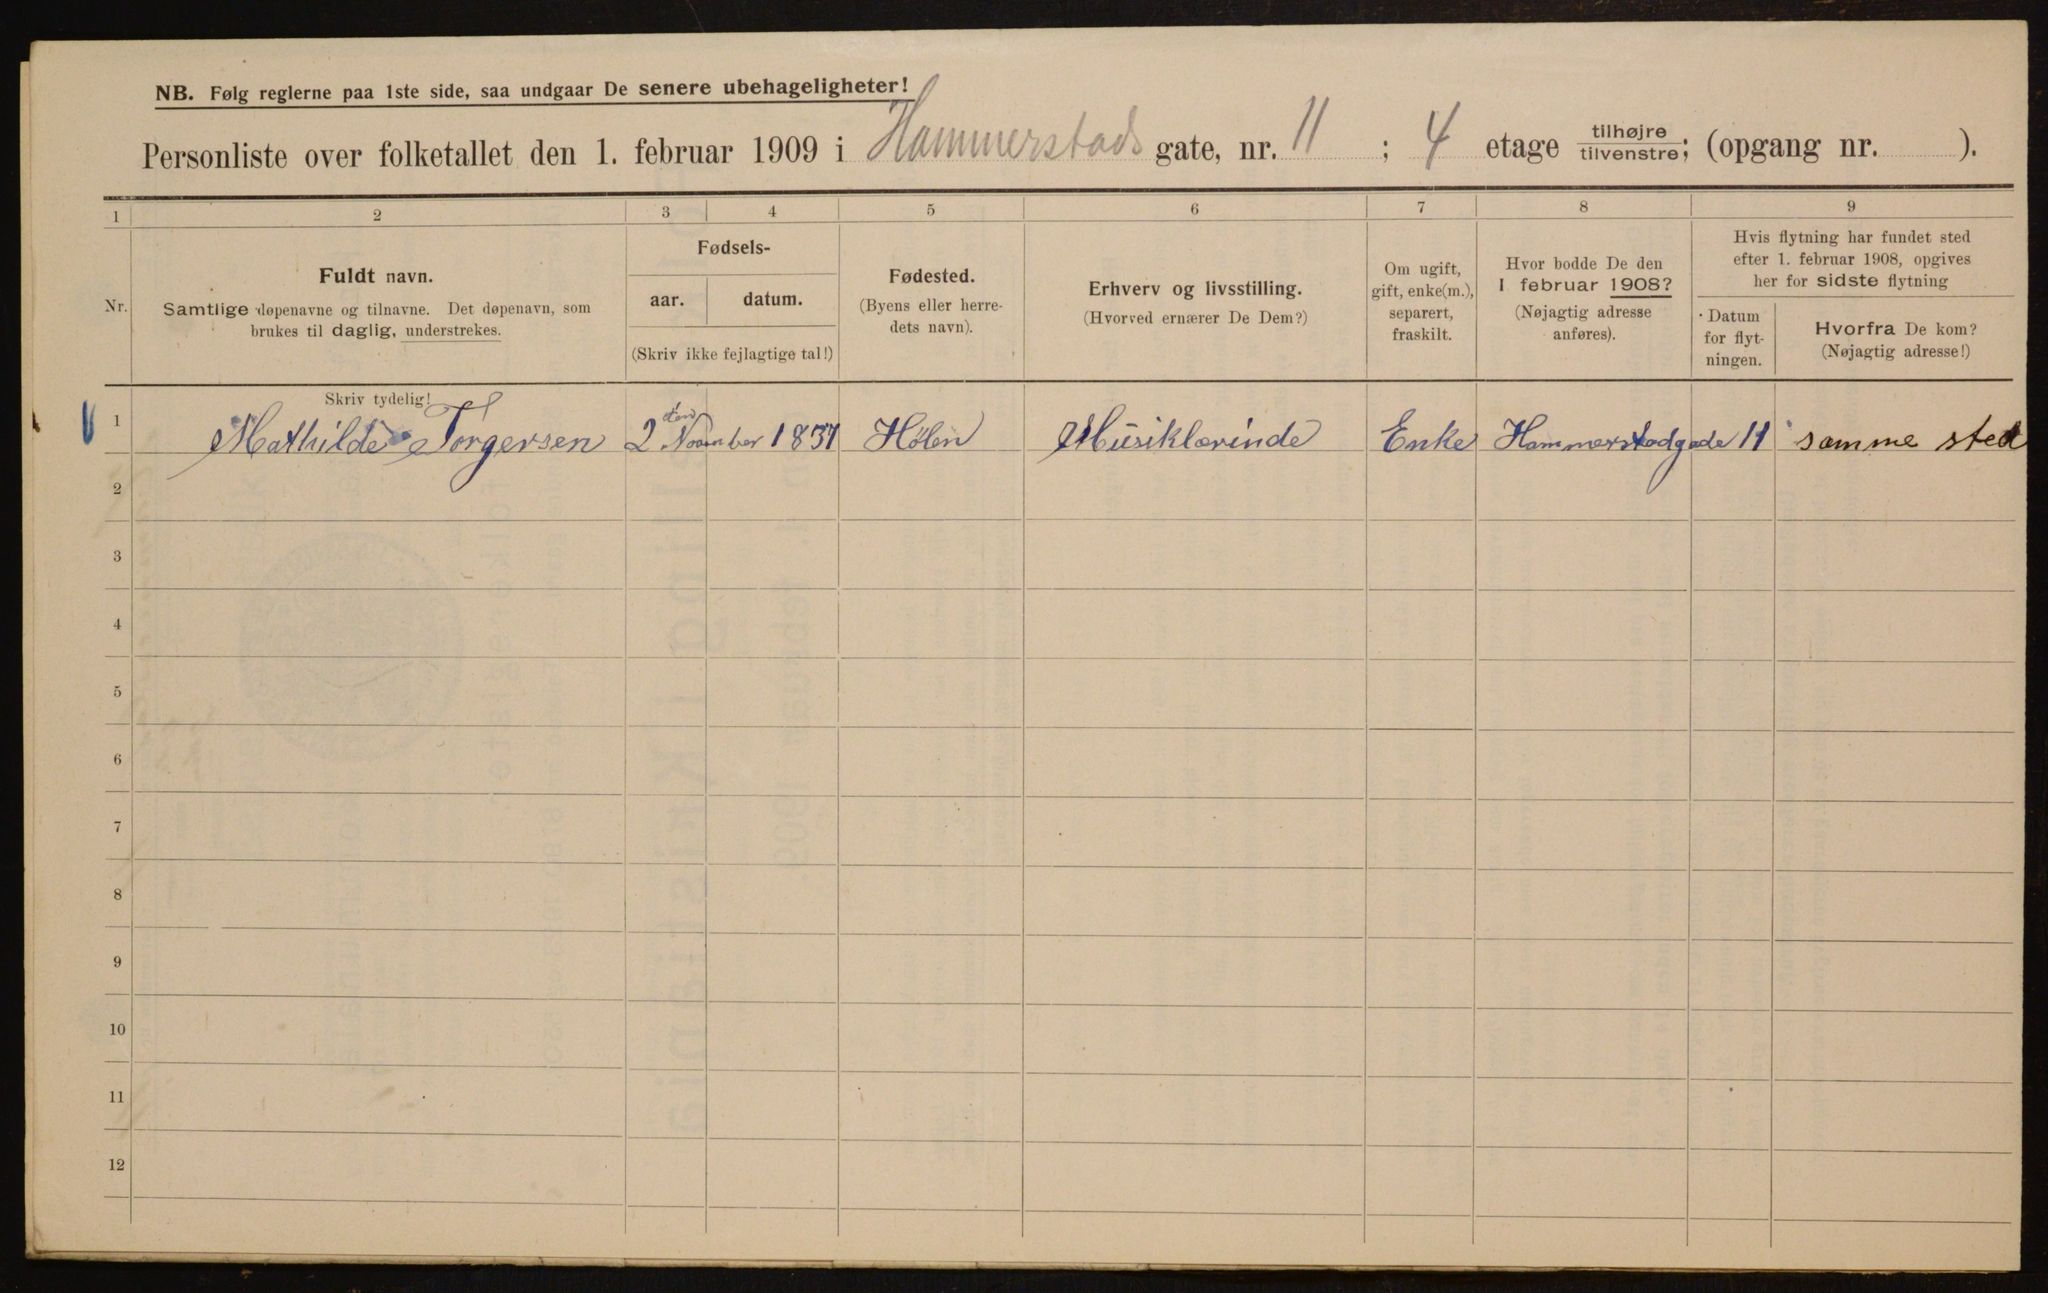 NB. Følg reglerne paa 1ste side, saa undgaar De senere ubehageligheter!
Personliste over folketallet den 1. februar 1909 i Hammerstads gate, nr. 11 ; 4 etage tilhøjre/tilvenstre; (opgang nr. ).
1 2 3 4 5 6 7 8 9
Nr.
Fuldt navn.
Samtlige døpenavne og tilnavne. Det døpenavn, som
brukes til daglig, understrekes.
Skriv tydelig!
Fødsels-
aar. datum.
(Skriv ikke fejlagtige tal!)
Fødested.
(Byens eller herre-
dets navn).
Erhverv og livsstilling.
(Hvorved ernærer De Dem?)
Om ugift,
gift, enke(m.),
separert,
fraskilt.
Hvor bodde De den
1 februar 1908?
(Nøjagtig adresse
anføres).
Hvis flytning har fundet sted
efter 1. februar 1908, opgives
her for sidste flytning
Datum
for flyt-
ningen.
Hvorfra De kom?
(Nøjagtig adresse!)
1 Mathilde Torgersen 2den November 1837 Hølen Musiklærinde Enke Hammerstadgade 11 samme sted
2
3
4
5
6
7
8
9
10
11
12